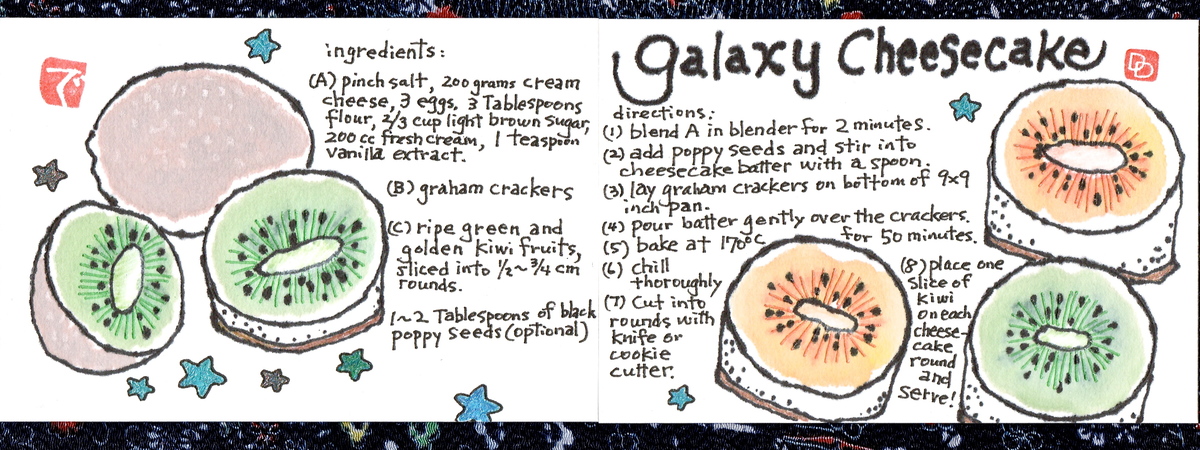 ingredients:
(A) pinch salt, 200 grams cream
cheese, 3 eggs, 3 Tablespoons
flour, 2/3 cup light brown sugar,
200 cc fresh cream, 1 teaspoon
vanilla extract.
(B) graham crackers
(C) ripe green and
golden kiwi fruits,
sliced into 1/2 ~ 3/4 cm
rounds.
1~2 Tablespoons of black
poppy seeds (optional)
galaxy Cheesecake
DD
directions:
(1) blend A in blender for 2 minutes.
(2) add poppy seeds and stir into
cheesecake batter with a spoon.
(3) lay graham crackers on bottom of 9x9
inch pan.
(4) pour batter gently over the crackers.
(5) bake at 170°C for 50 minutes.
(6) chill
thoroughly
(7) Cut into
rounds with
knife or
cookie
cutter.
(8) place one
slice of
kiwi
on each
cheese-
cake
round
and
serve!